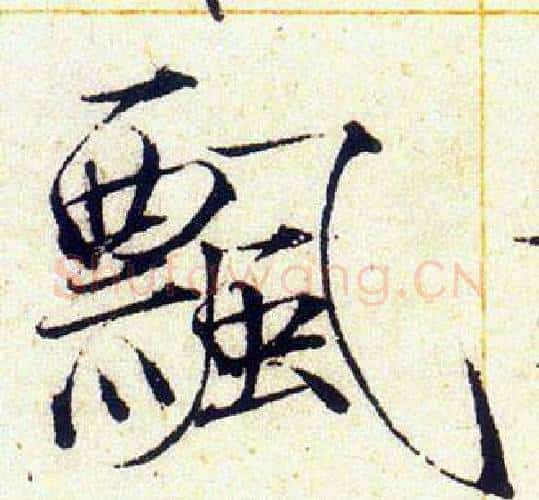 飄
Shufawang.CN